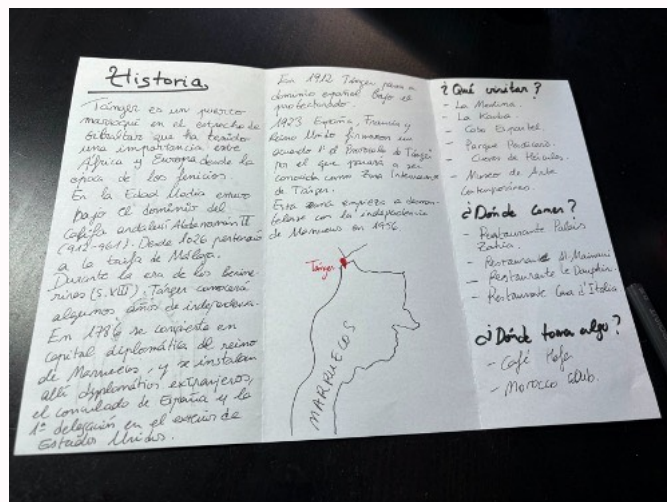 Historia
Tánger es un puerto
marroquí en el estrecho de
Gibraltar que ha tenido
una importancia entre
África y Europa desde la
época de los fenicios.
En la Edad Media estuvo
bajo el dominio del
Califa andalusí Abderramán III
(912-961). Desde 1026 perteneció
a la taifa de Málaga.
Durante la era de los benime-
rines (s. VIII), Tánger conocerá
algunos años de independencia.
En 1786 se convierte en
capital diplomática del reino
de Marruecos, y se instalan
allí diplomáticos extranjeros,
el consulado de España y la
1ª delegación en el exterior de
Estados Unidos.
En 1912 Tánger pasa a
dominio español bajo el
protectorado.
1923 España, Francia y
Reino Unido firmaron un
acuerdo "el Protocolo de Tánger"
por el que pasará a ser
conocida como Zona Internacional
de Tánger.
Esta zona empieza a desman-
telarse con la independencia
de Marruecos en 1956
Tánger
MARRUECOS
¿Qué visitar?
- La Medina.
- La Kasba.
- Cabo Espartel.
- Parque Perdicaris.
- Cuevas de Hércules.
- Museo de Arte
Contemporáneo.
¿Dónde comer?
- Restaurante Palais
Zahia.
- Restaurante Al-Maimuni
- Restaurante Le Dauphin.
- Restaurante Casa d'Italia
¿Dónde tomar algo?
- Café Hafa
- Morocco Club.